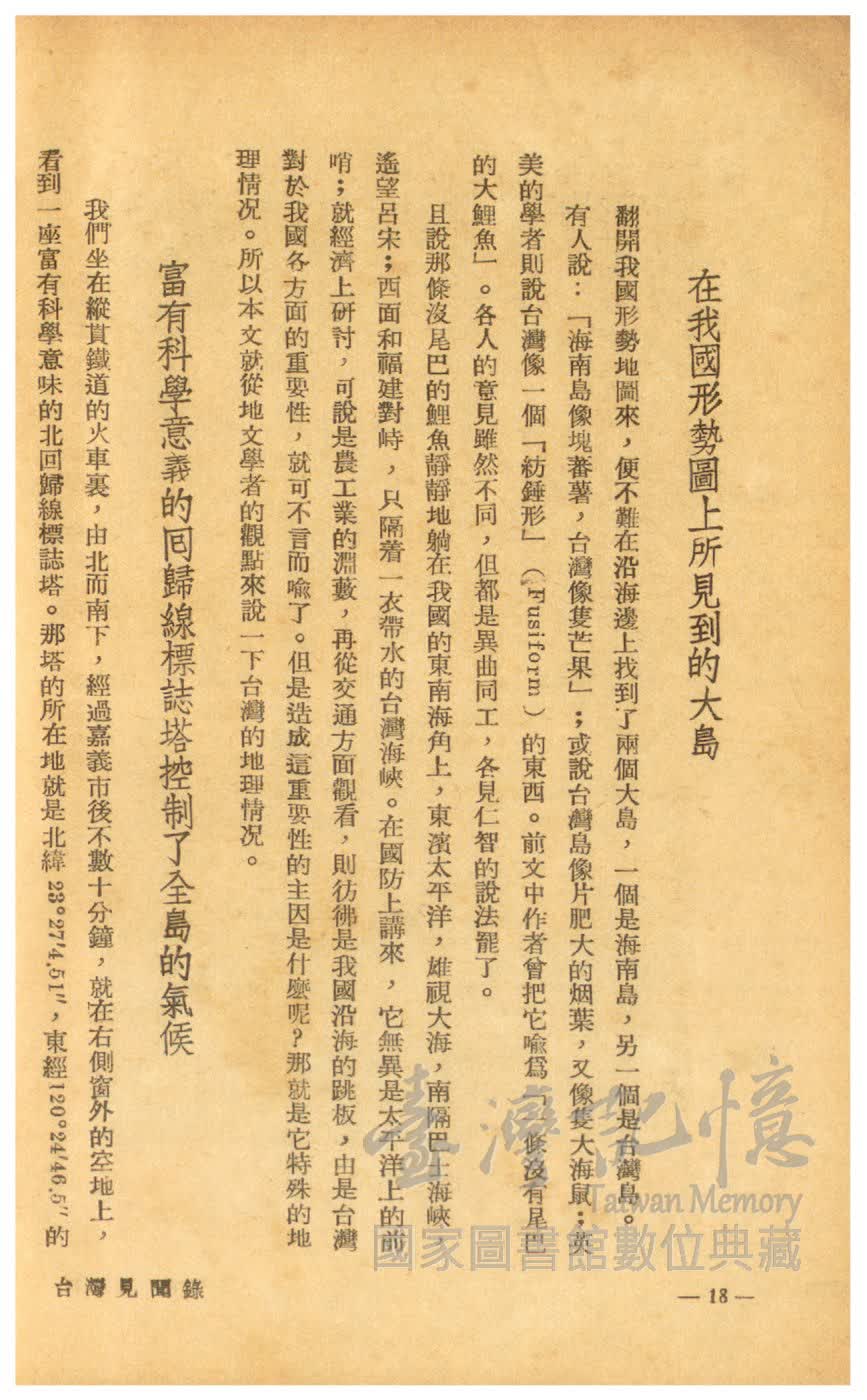 在我國形勢圖上所見到的大島
翻開我國形勢地圖來，便不難在沿海邊上找到了兩個大島，一個是海南島，另一個是台灣島。
有人說：「海南島像塊蕃薯，台灣像隻芒果」；或說台灣島像片肥大的烟葉，又像隻大海鼠；英
美的學者則說台灣像一個「紡錘形」（Fusiform）的東西。前文中作者曾把它喻爲「一條沒有尾巴
的大鯉魚」。各人的意見雖然不同，但都是異曲同工，各見仁智的說法罷了。
且說那條沒尾巴的鯉魚靜靜地躺在我國的東南海角上，東濱太平洋，雄視大海，南隔巴士海峽，
遙望呂宋；西面和福建對峙，只隔着一衣帶水的台灣海峽。在國防上講來，它無異是太平洋上的前
哨；就經濟上研討，可說是農工業的淵藪，再從交通方面觀看，則彷彿是我國沿海的跳板，由是台灣
對於我國各方面的重要性，就可不言而喻了。但是造成這重要性的主因是什麼呢？那就是它特殊的地
理情況。所以本文就從地文學者的觀點來說一下台灣的地理情況。
富有科學意義的囘歸線標誌塔控制了全島的氣候
我們坐在縱貫鐵道的火車裏，由北而南下，經過嘉義市後不數十分鐘，就在右側窗外的空地上，
看到一座富有科學意味的北回歸線標誌塔。那塔的所在地就是北緯 23°27'4.51"，東經120°24'46.5" 的
台灣見聞錄
— 18 —
臺灣記憶
Taiwan Memory
國家圖書館數位典藏